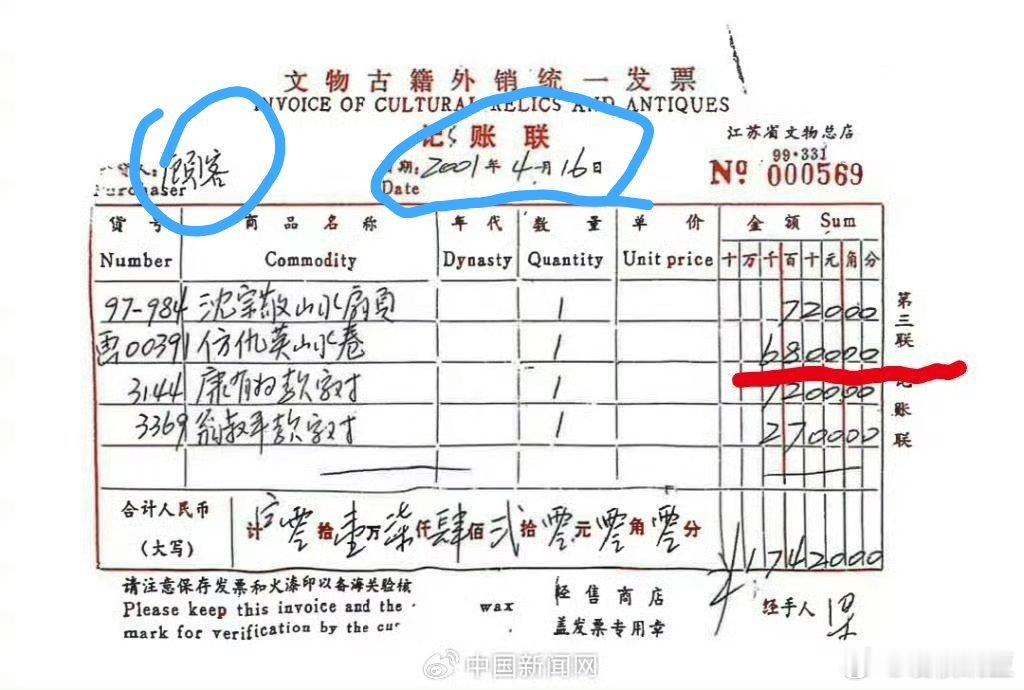 文物古籍外销统一发票
INVOICE OF CULTURAL RELICS AND ANTIQUES
记账联
江苏省文物总店
99·331
Nº 000569
人：顾客
Purchaser
期：2001年4月16日
Date
货号 商品名称 年代 数量 单价 金额 Sum
Number Commodity Dynasty Quantity Unit price 十万千百十元角分
97-984 沈宗敬山水扇页 1 72000
00391 仿仇英山水卷 1 680000
3144 康有为款字对 1 720000
3369 翁叔平款字对 1 270000
第三联 记账联
合计人民币（大写） 计 零拾壹万柒仟肆佰贰拾零元零角零分 ¥1742000
请注意保存发票和火漆印以备海关验核
Please keep this invoice and the wax
mark for verification by the cus
经售商店
盖发票专用章
经手人 梁
中国新闻网